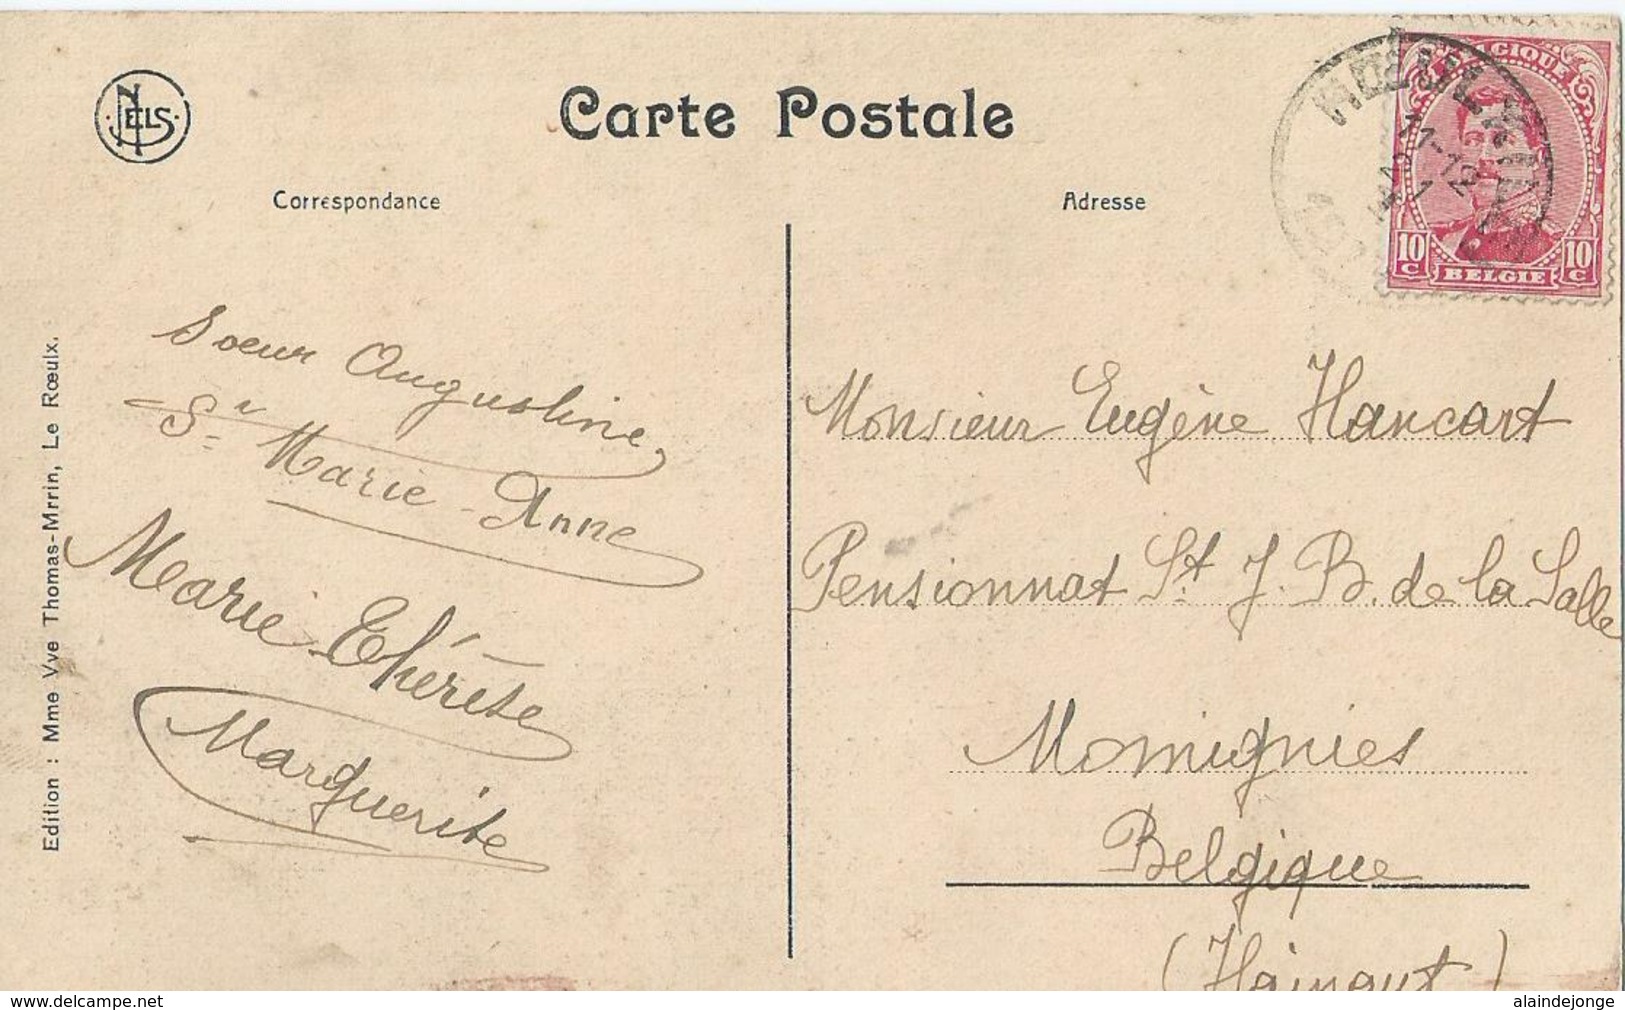 NELS
Carte Postale
Correspondance
Adresse
BELGIQUE
10 C
BELGIE
10 C
Edition : Mme Vve Thomas-Mrrin, Le Rœulx.
Soeur Augustine
Sr Marie-Anne
Marie Thérèse
Marguerite
Monsieur Eugène Hancart
Pensionnat St. J. B. de la Salle
Momignies
Belgique
(Hainaut)
delcampe.net
alaindejonge